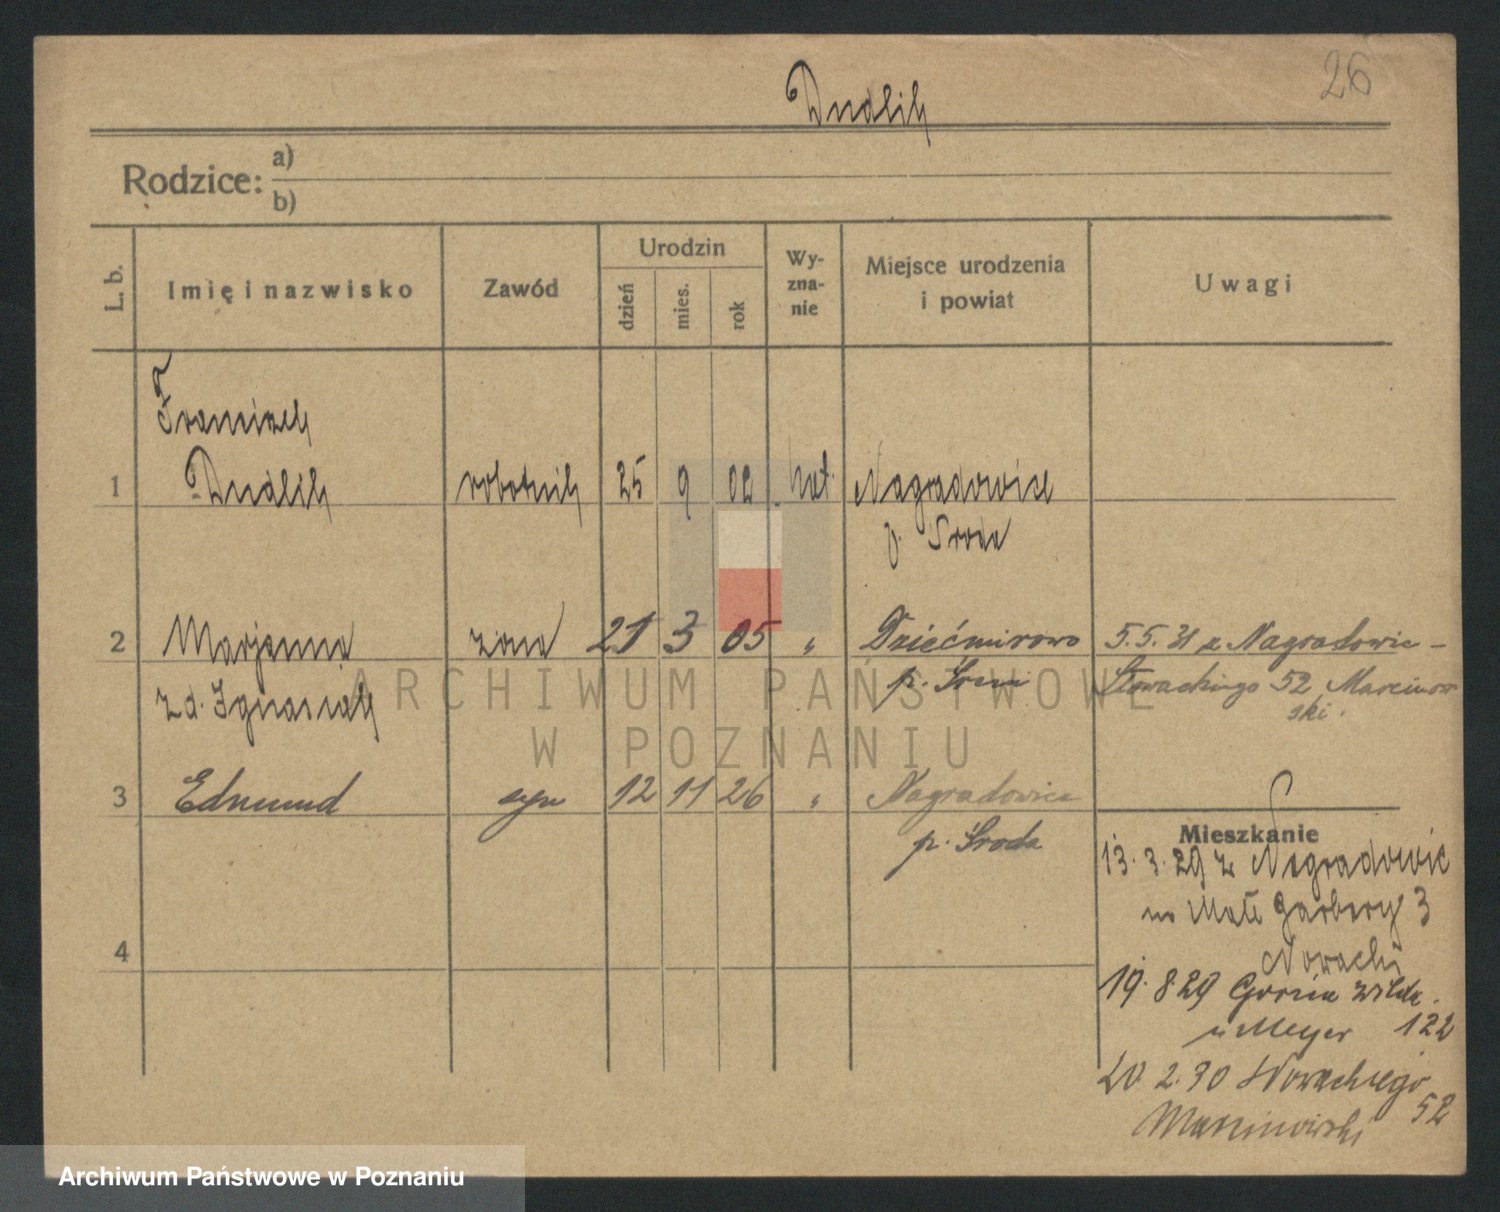 26
Dudlik
Rodzice:
a)
b)
L. b.
Imię i nazwisko
Zawód
Urodzin
dzień
mies.
rok
Wy-
zna-
nie
Miejsce urodzenia
i powiat
Uwagi
Franciszek
1 Dudlik robotnik 25 9 02 kat. Nagradowice
p. Środa
2 Marjanna żona 21 3 05 " Dziećmirowo 5.5.31 z Nagradowic -
zd. Ignasiak p. Śrem Słowackiego 52 Marcinow
ski.
3 Edmund syn 12 11 26 " Nagradowice
p. Środa
4
Mieszkanie
13.3.29 z Nagradowic
na Małe Garbary 3
Nowacki
19.8.29 Górna Wilda
u Meyer 122
20 2.30 Słowackiego
52
Marcinowski
ARCHIWUM PAŃSTWOWE
W POZNANIU
Archiwum Państwowe w Poznaniu